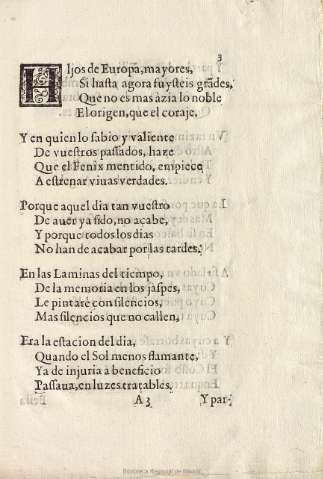 3
HIjos de Europa, mayores,
Si hasta agora fuysteis grãdes,
Que no es mas àzia lo noble
El origen, que el coraje.
Y en quien lo sabio y valiente
De vuestros passados, haze
Que el Fenix mentido, empiece
A estrenar viuas verdades.
Porque aquel dia tan vuestro
De auer ya sido, no acabe,
Y porque todos los dias
No han de acabar por las tardes,
En las Laminas del tiempo,
De la memoria en los jaspes,
Le pintarè con silencios,
Mas silencios que no callen,
Era la estacion del dia,
Quando el Sol menos flamante,
Ya de injuria a beneficio
Passaua, en luzes tratables,
A3 Y par-
Biblioteca Regional de Madrid